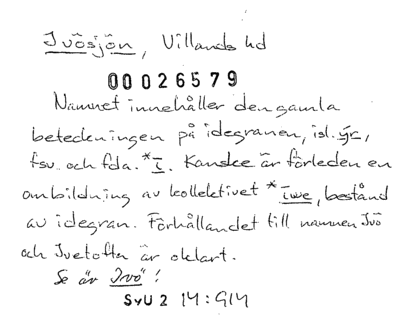 Ivösjön, Villands hd
00026579
Namnet innehåller den gamla
beteckningen på idegranen, isl. ýr,
fsv. och fda. *ī. Kanske är förleden en
ombildning av kollektivet *īwe, bestånd
av idegran. Förhållandet till namnen Ivö
och Ivetofta är oklart.
Se äv Ivö!
SvU 2 14:914